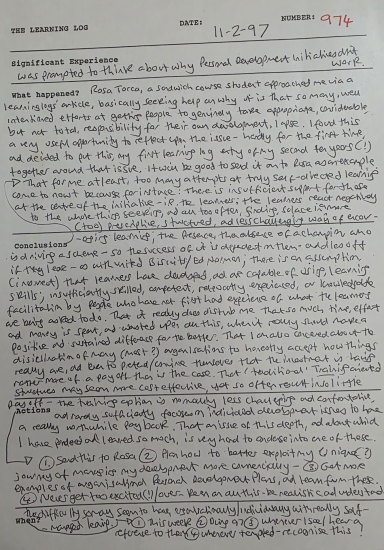 THE LEARNING LOG
DATE: 11-2-97
NUMBER: 974
Significant Experience
was prompted to think about why Personal Development Initiatives don't
work.
What happened? Rosa Torca, a sandwich course student approached me via a
learning logs article, basically seeking help on why it is that so many, well
intentioned efforts at getting people to genuinely take appropriate, considerable
but not total, responsibility for their own development, lapse. I found this
a very useful opportunity to reflect upon the issue - hardly for the first time,
and decided to put this, my first learning log entry of my second ten years (!)
together around that issue, it would be good to send it on to Rosa as an example
That for me at least, too many attempts at truly self-directed learning
come to nought because for instance: There is insufficient support for those
at the of the initiative - i.e. the learners; the learners react negatively
to the whole thing seeking, and all too often, finding, solace in more
(too) prescriptive, structured, and less challenging ways of
learning; the absence of a champion, who
Conclusions
is driving a scheme - so the success of it is dependent on them - and lead off
if they leave - as with United Biscuits/Ed Norman; there is an assumption
(incorrect) that learners have developed, and are capable of using, learning
skills; insufficiently skilled, competent, experienced, or knowledgable
facilitation by people who have not first hand experience of what the learners
are being asked to do. That it really does disturb me. That so much time, effort
and money is spent, and wasted upon all this, when it really should make a
positive and sustained difference for the better. That I am also concerned about the
disinclination of many (most?) organisations to honestly accept how things
really are, and even to pretend/convince themselves that the investment is having
rather more of a pay off than is the case. That 'traditional' Training oriented
structures may seem more cost effective, yet so often result in so little
pay off - the training option is normally less challenging and comfortable,
Actions
and rarely sufficiently focused on individual development issues to have
a really worthwhile pay back. That an issue of this depth, and about which
I have and learned so much, is very hard to enclose into one of these.
① Send this to Rosa ② Plan how to better exploit my (unique?)
journey of managing my development more commercially - ③ Get more
examples of organisational Personal Development Plans, and learn from these.
④ Never get too excited (!) / over-keen on all this - be realistic and understand
the difficulty so many seem to have, organisationally/individually with really self-
managed learning.
When?
① This week ② During 97 ③ whenever I see/hear a
reference to them ④ whenever tempted - recognise this!